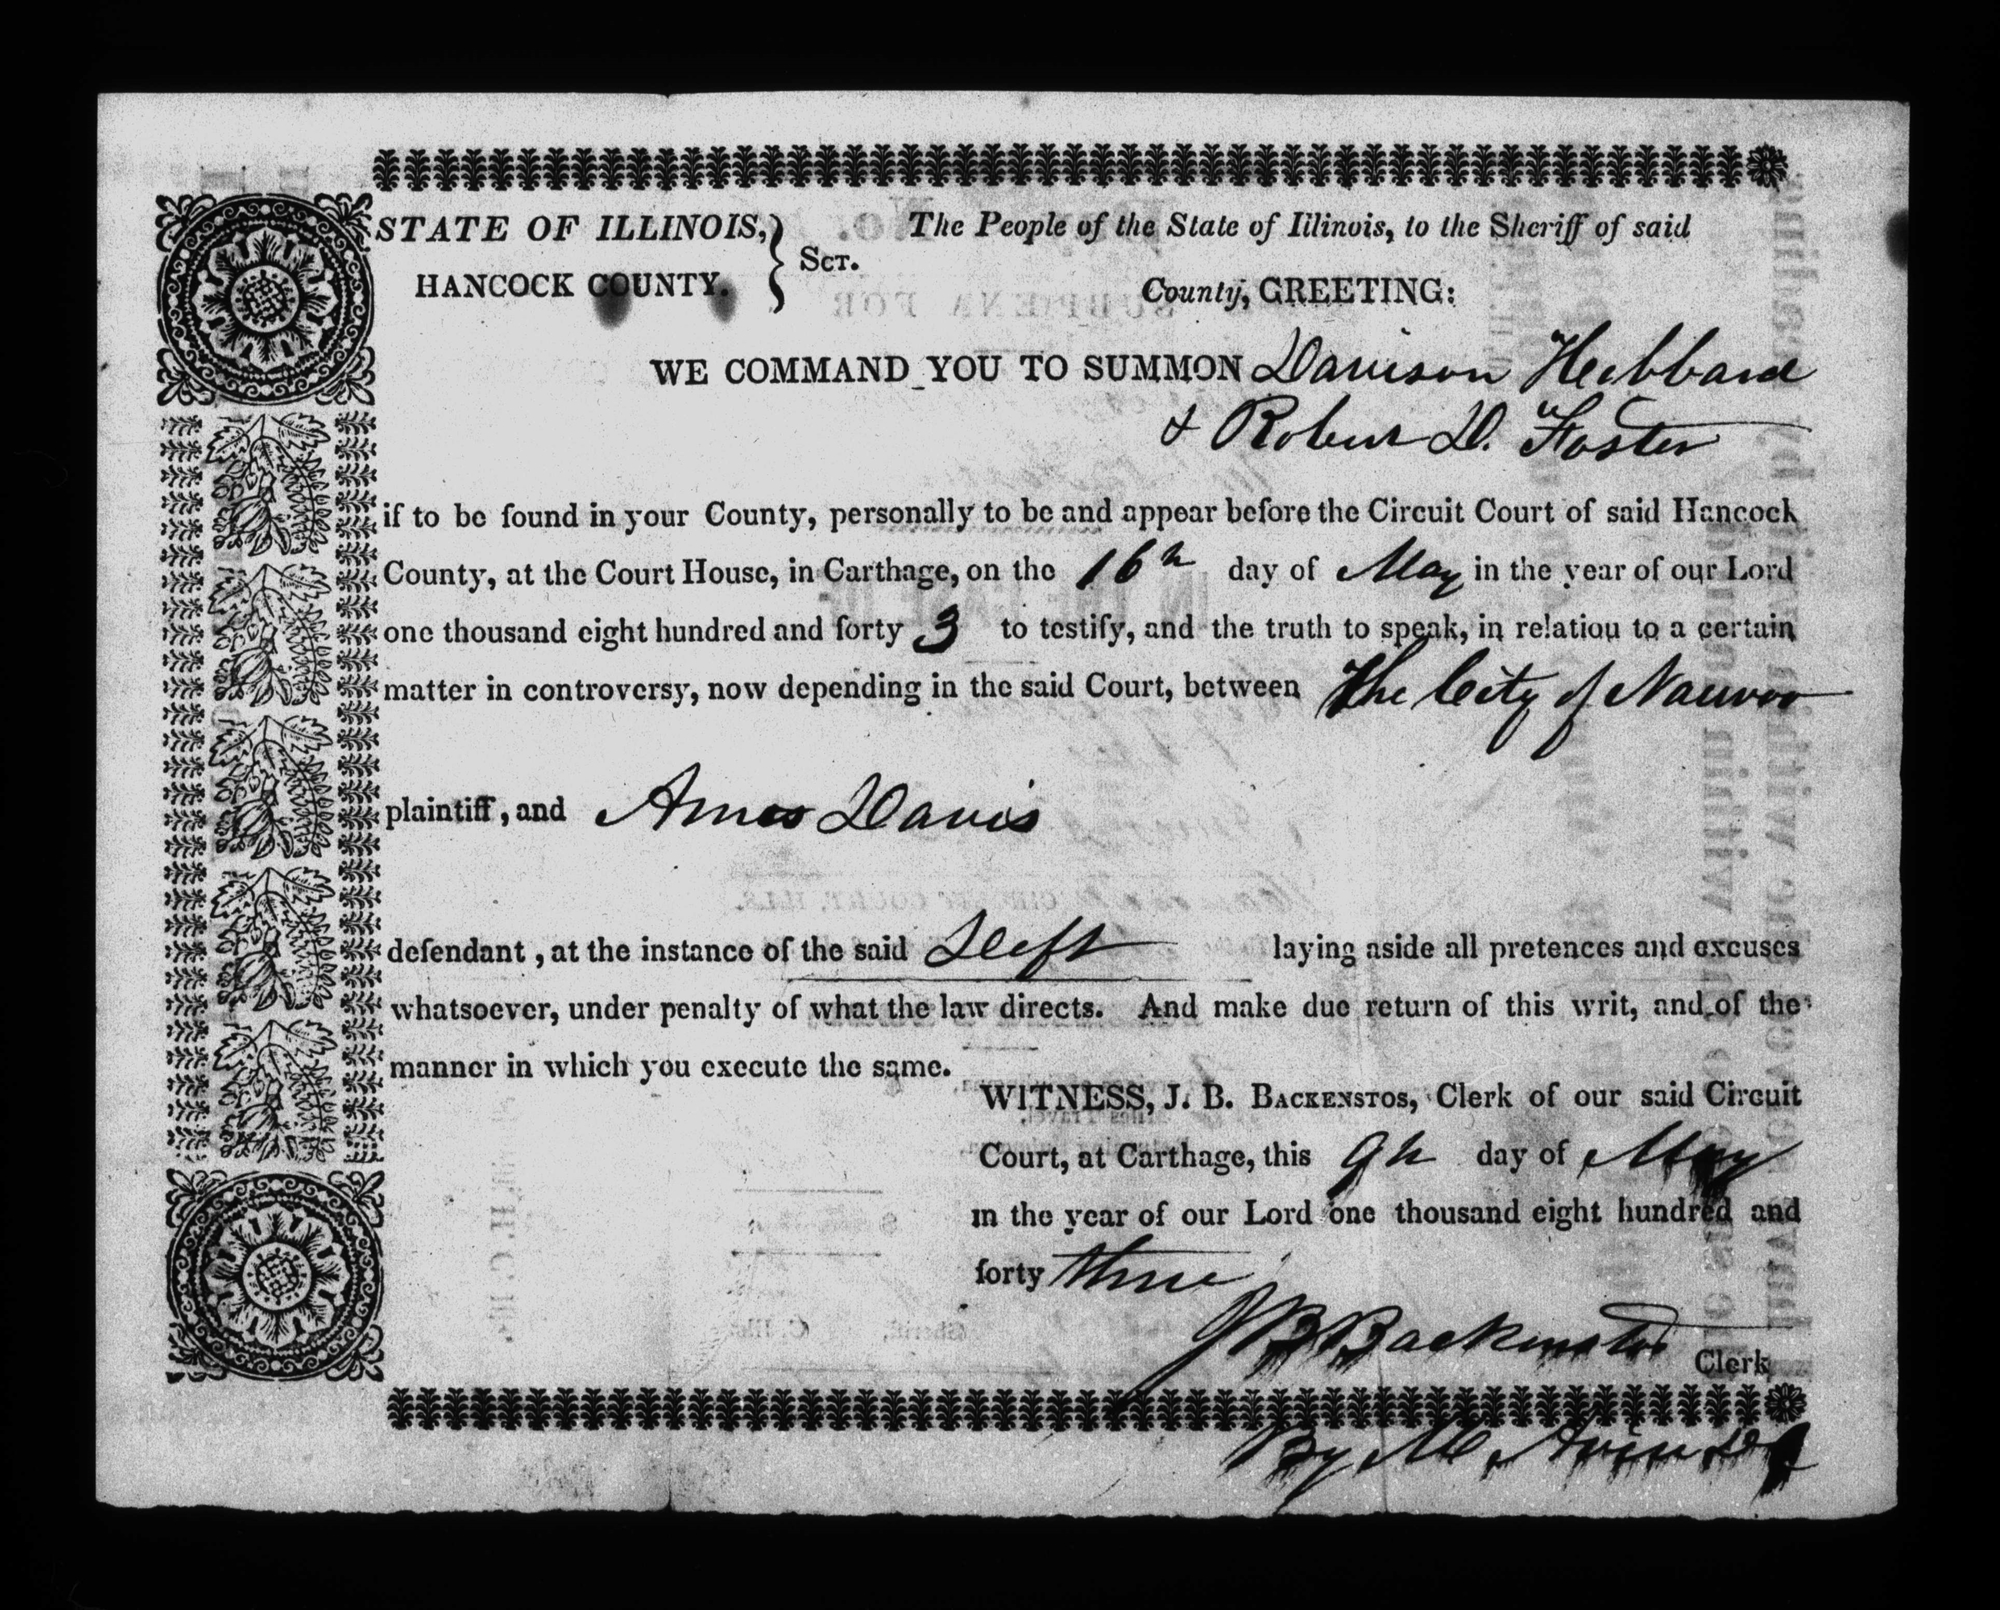 STATE OF ILLINOIS,
HANCOCK COUNTY.
} SCT.
The People of the State of Illinois, to the Sheriff of said
County, GREETING:
WE COMMAND YOU TO SUMMON Davison Hebbard
& Robert D. Foster
if to be found in your County, personally to be and appear before the Circuit Court of said Hancock
County, at the Court House, in Carthage, on the 16th day of May in the year of our Lord
one thousand eight hundred and forty 3 to testify, and the truth to speak, in relatiou to a certain
matter in controversy, now depending in the said Court, between The City of Nauvoo
plaintiff, and Amos Davis
defendant, at the instance of the said Deft laying aside all pretences and excuses
whatsoever, under penalty of what the law directs. And make due return of this writ, and of the
manner in which you execute the same.
WITNESS, J. B. BACKENSTOS, Clerk of our said Circuit
Court, at Carthage, this 9h day of May
in the year of our Lord one thousand eight hundred and
forty three
J B Backenstos Clerk
By M. Avise D